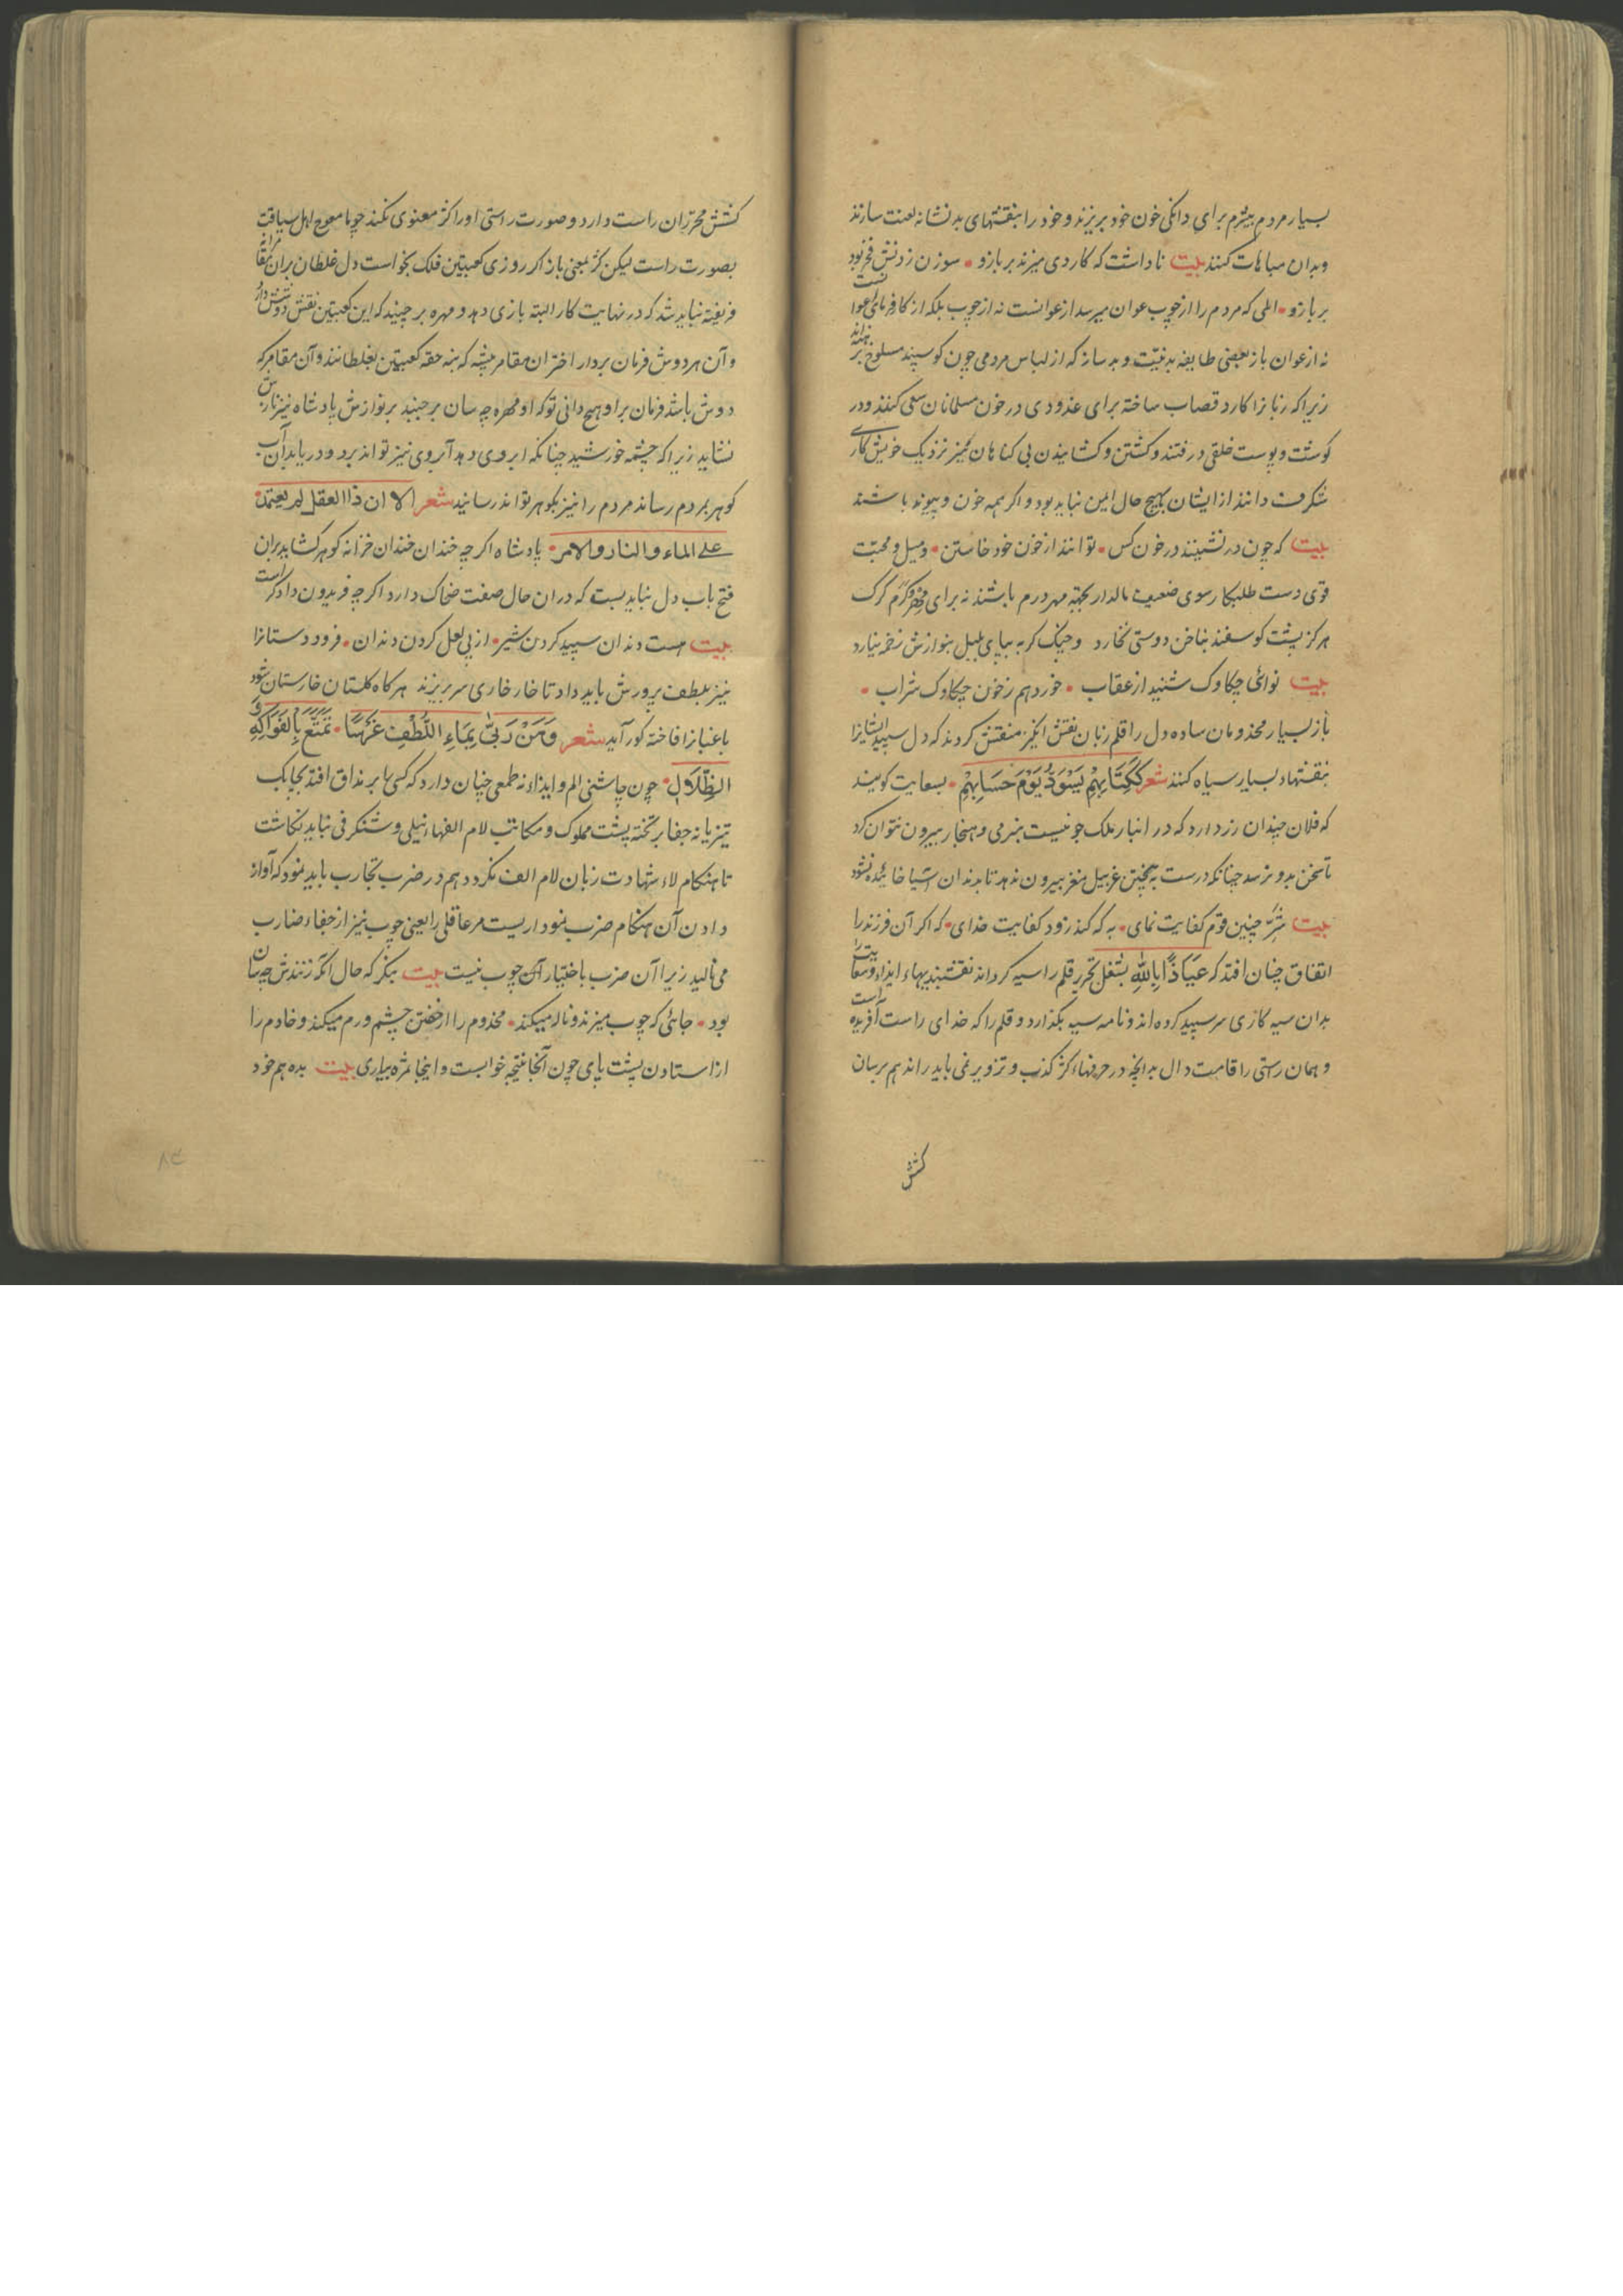 بسیار مردم بیشرم برای دانکی خون خود بریزند و خود را بنقشهای بد نشانه لعنت سازند
وبدان مباهات کنند بیت ناداشت که کاردی میزند بر بازو • سوزن زدنش فخر بود
بر بازو • المی که مردم را از چوب عوان میرسد از عوانست نه از چوب بلکه از کارفرمای
نه از عوان باز بعضی طایفه بدنیت و بد ساز که از لباس مردمی چون کوسپند مسلوخ برهنه اند
زیرا که زبانرا کارد قصاب ساخته برای غدودی در خون مسلمانان سعی کنند و در
کوشت و پوست خلقی درفتند و کشتن و کشانیدن بی کناهان نیز نزدیک خویش کاری
شکرف دانند از ایشان بهیچ حال امین نباید بود و اکر همه خون و پیوند باشند
بیت که چون در نشینند در خون کس • توانند از خون خود خاستن • ومیل و محبت
قوی دست طلبکار سوی ضعیف مالدار بجهة مهر درم باشد نه برای مهر و کرم کرک
هرکز پشت کوسفند بناخن دوستی نخارد و چنک کربه بپای بلبل بنوازش زخمه نیارد
بیت نوائی چکاوک شنید از عقاب • خورد هم زخون چکاوک شراب •
باز بسیار مخدومان ساده دل را قلم زبان نقش انکیز منقش کردند که دل سپید ایشانرا
بنقشهاء بسیار سیاه کنند شعر ککتابهم یسود یوم حسابهم • بسعایت کویند
که فلان چندان زر دارد که در انبار ملک جو نیست بنرمی و هنجار بیرون نتوان کرد
تا سخن بدو نرسد چنانکه درست به بیختن غربیل مغز بیرون ندهد تا بدندان اشیا خائیده نشود
بیت شر چنین قوم کفایت نمای • به که کند زود کفایت خدای • که اکر آن فرزند را
اتفاق چنان افتد که عیاذا بالله بشغل تحریر قلم را سیه کرداند نقشبندیهاء ایذاء وسعایت
بدان سیه کاری سر سپید کرده اند و نامه سیه بکذارد و قلم را که خدای راست آفریده است
و همان راستی را قامت دال بدانچه در حرفهاء کژ کذب و تزویر نمی باید راند هم برسان
کشش
کشش محرران راست دارد و صورت راستی او را کژ معنوی نکند چو بامعوج اهل سیاقت
بصورت راست لیکن کژ بمعنی باز اکر روزی کعبتین فلک بخواست دل غلطان بران
فریفته نباید شد که در نهایت کار البته بازی دهد و مهره برچیند که این کعبتین نقش
و آن هر دوش فرمان بردار اختران مقامر پیشه که بنه حقه کعبتین بغلطانند و آن مقامر که
دوش باشد فرمان بر او هیچ دانی تو که او مهره چه سان برچیند بر نوازش پادشاه نیز نازش
نشاید زیرا که چشمه خورشید چنانکه ابروی دهد آبروی نیز تواند برد و دریا بدان آب
کوهر بردم رساند مردم را نیز بکوهر تواند رسانید شعر الا ان ذا العقل لم یعتمد •
علی الماء والنار والامر • پادشاه اکرچه خندان خندان خزانه کوهر کشاید بران
فتح باب دل نباید بست که در ان حال صفت ضحاک دارد اکرچه فریدون دادکر است
بیت هست دندان سپید کردن شیر • از پی لعل کردن دندان • فرود دستانرا
نیز بلطف پرورش باید داد تا خار خاری سر بریزند هر کاه کلستان خارستان شود
باغبانرا فاخته کور آید شعر ومن ربی بماء اللطف غرسا • تمتع بالفواکه و
الظلال • چون چاشنی الم و ایذاء نه طمعی چنان دارد که کسی را بر مذاق افتد بچابک
تیزیانه جفا بر تخته پشت مملوک و مکاتب لام الفهاء نیلی و شنکرفی نباید نکاشت
تا هنکام لاء شهادت زبان لام الف نکردد هم در ضرب تجارب باید نمود که آواز
دادن آن هنکام ضرب نموداریست مر عاقل را یعنی چوب نیز از جفاء ضارب
می نالید زیرا آن ضرب باختیار آن چوب نیست بیت بنکر که حال آنکه زنندش چه سان
بود • جائی که چوب میزند و ناله میکند • مخدوم را از خفتن چشم ورم میکند و خادم را
از استادن پشت پای چون آنجا نتیجه خوابست و اینجا ثمره بیداری بیت بده هم خود